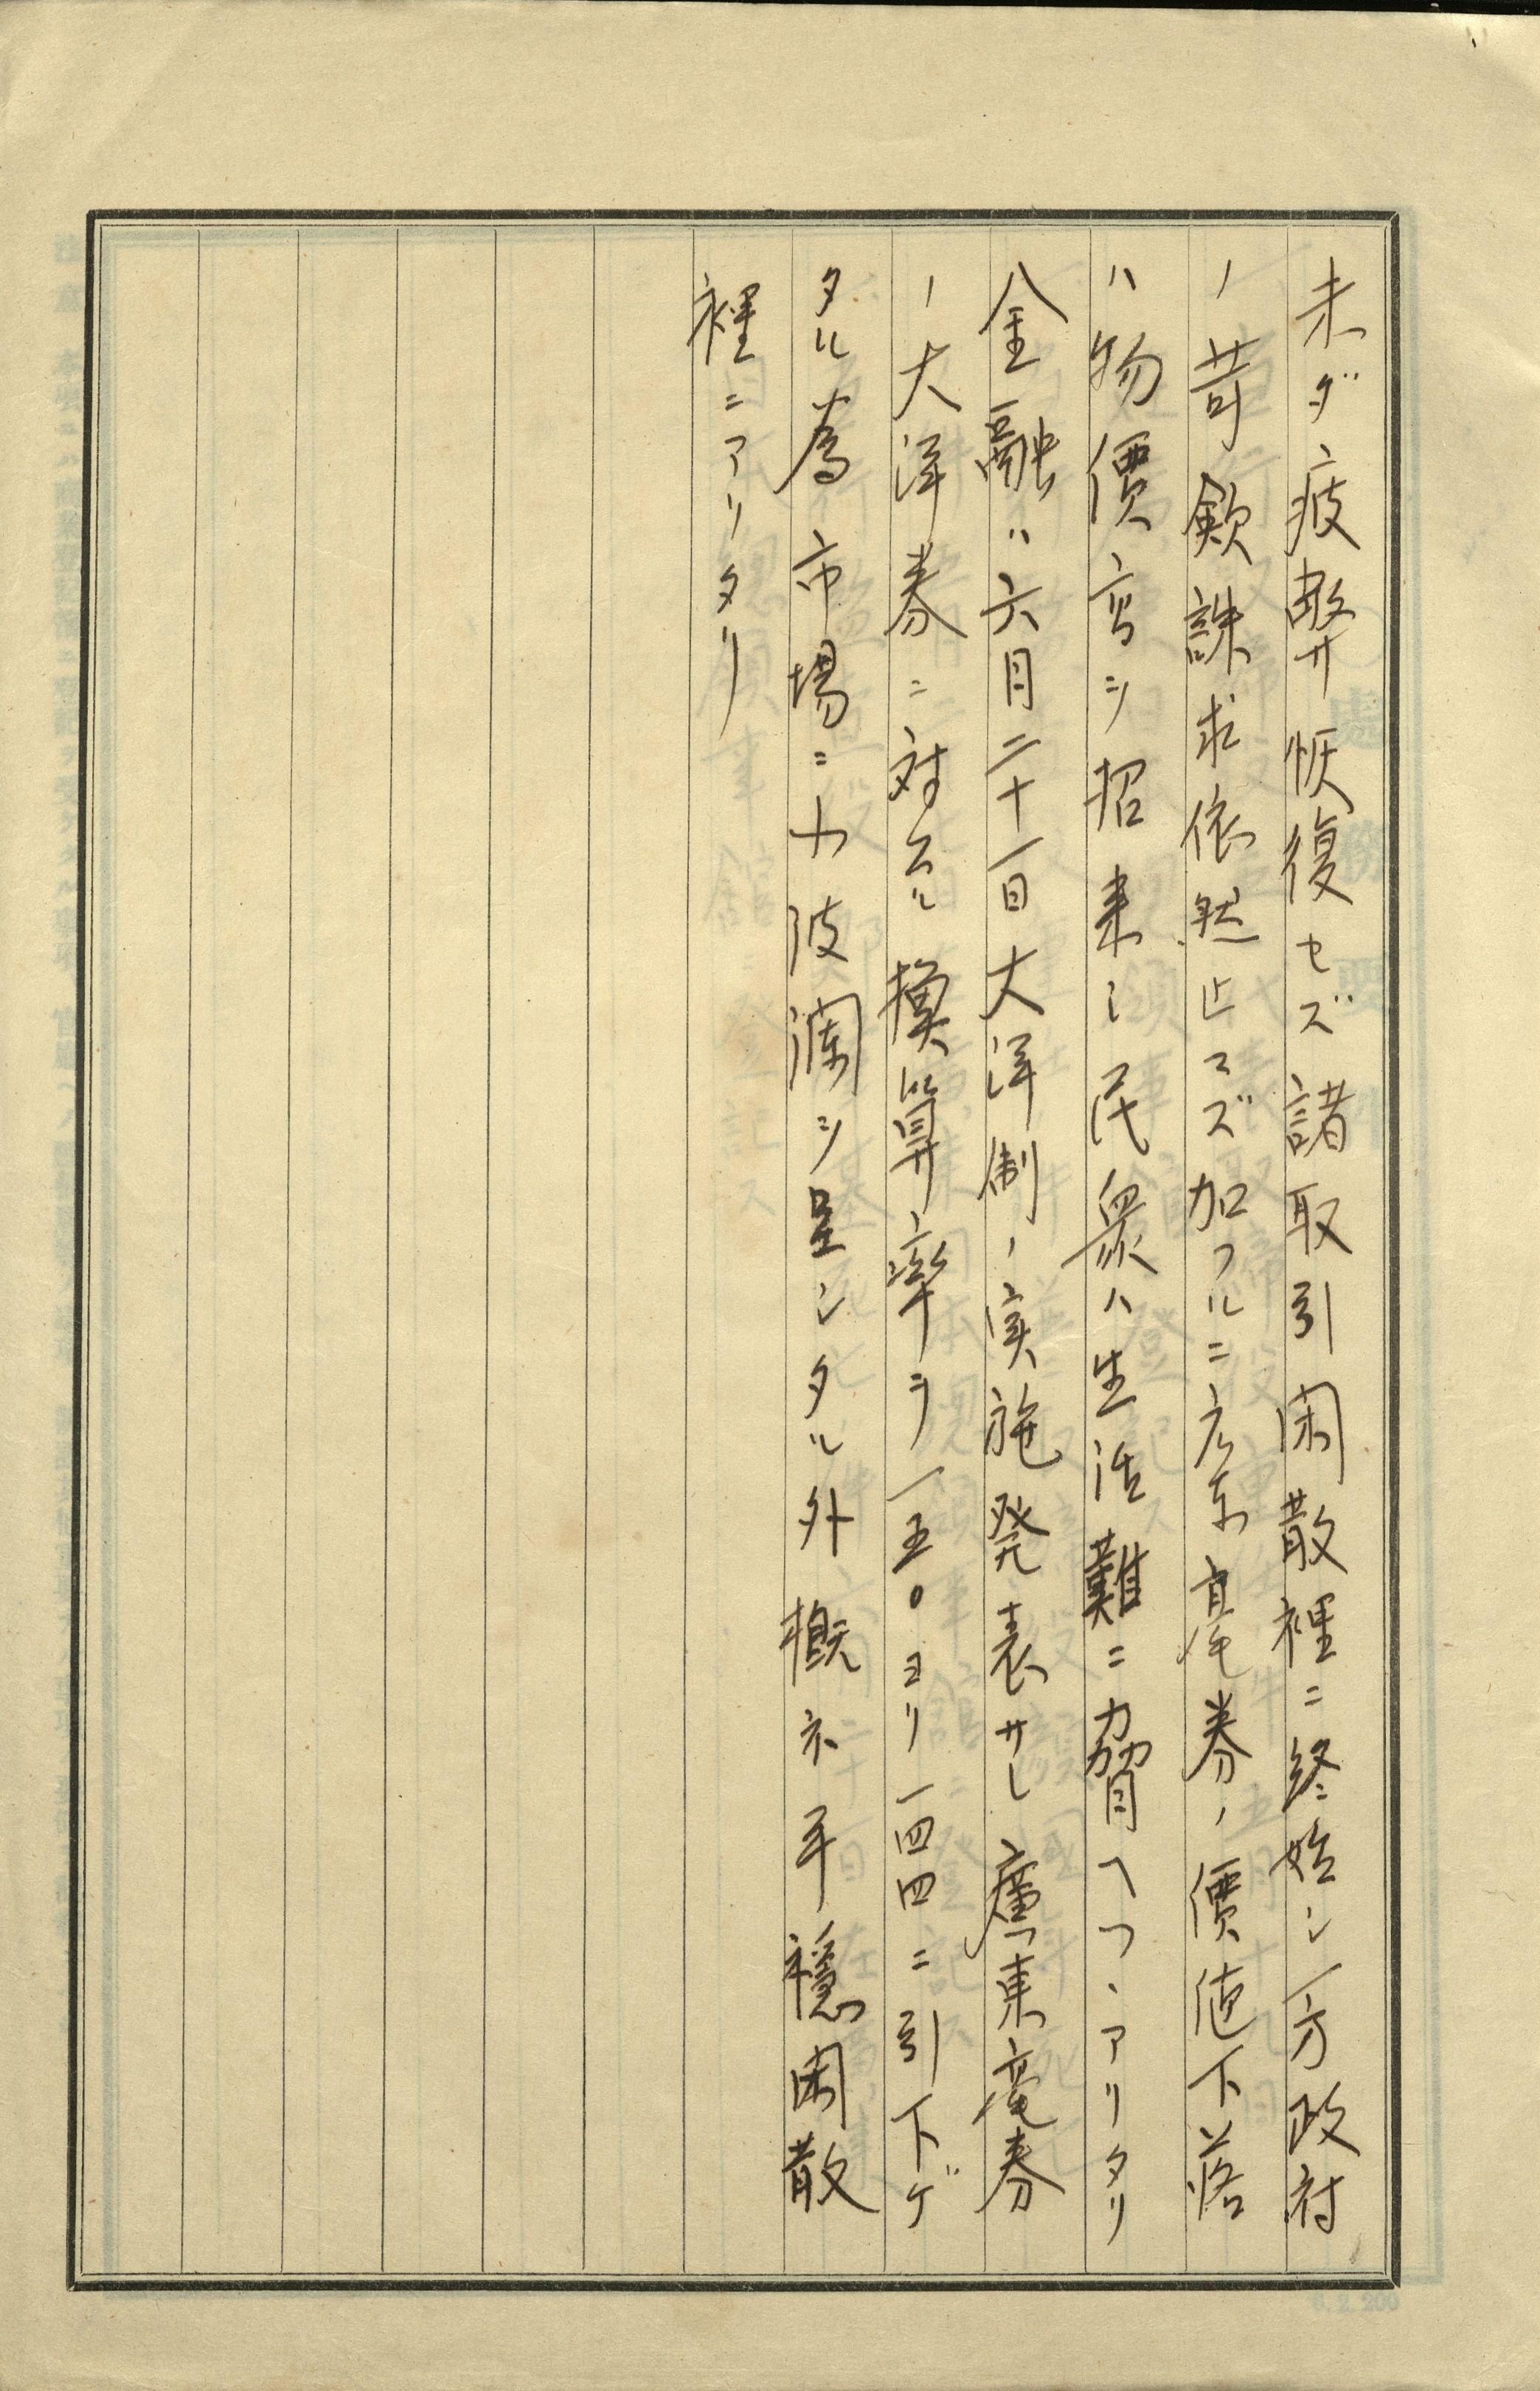 未ダ疲弊恢復セズ諸取引閑散裡ニ終始シ一方政府
ノ苛歛誅求依然止マズ加フルニ広東毫券ノ價値下落
ハ物價高ヲ招来シ民衆ハ生活難ニ脅ヘツヽアリタリ
金融ハ六月二十一日大洋制ノ実施発表サレ廣東毫券
ノ大洋券ニ対スル換算率ヲ一五〇ヨリ一四四ニ引下ゲ
タル為市場ニ小波瀾ヲ呈シタル外概ネ平穏閑散
裡ニアリタリ